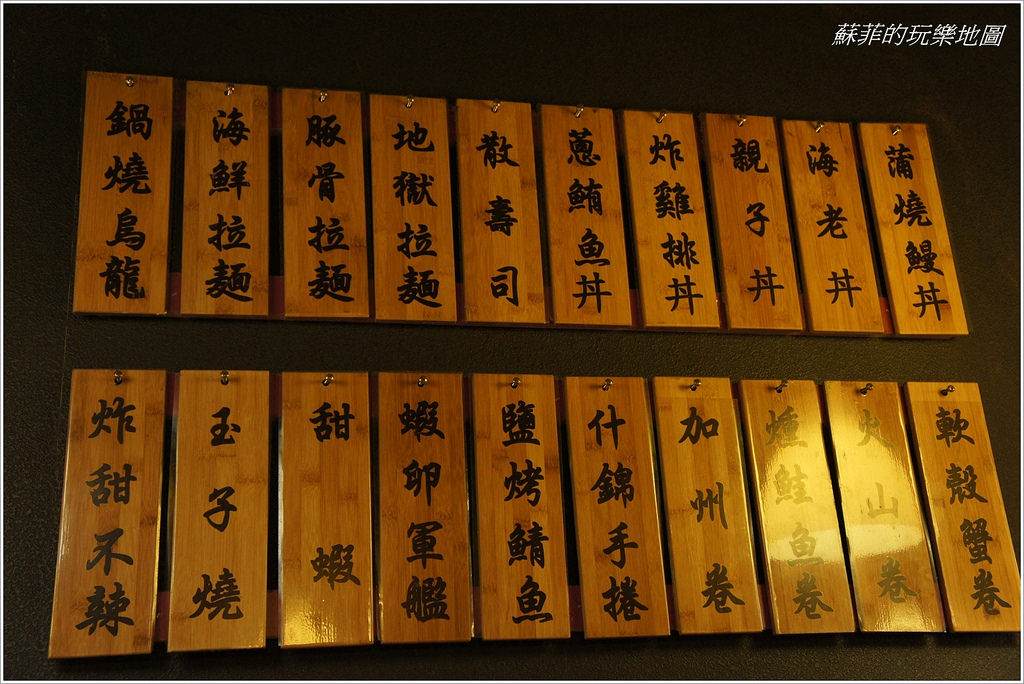 蘇菲的玩樂地圖
鍋燒烏龍
海鮮拉麵
豚骨拉麵
地獄拉麵
散壽司
蔥鮪魚丼
炸雞排丼
親子丼
海老丼
蒲燒鰻丼
炸甜不辣
玉子燒
甜蝦
蝦卵軍艦
鹽烤鯖魚
什錦手捲
加州卷
燻鮭魚卷
火山卷
軟殼蟹卷